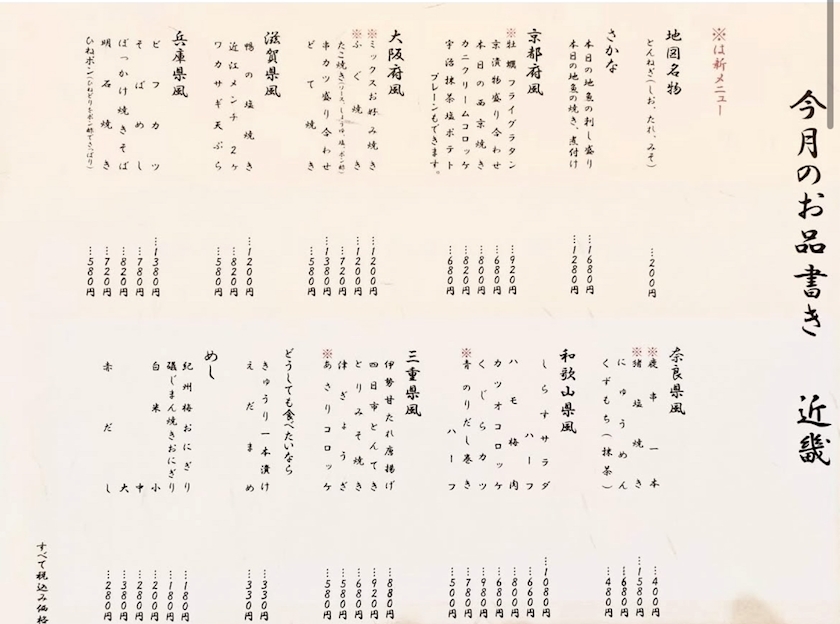 今月のお品書き 近畿
※は新メニュー
地図名物
とんねぎ(しお、たれ、みそ) …200円
さかな
本日の地魚の刺し盛り …1680円
本日の地魚の焼き、煮付け …1280円
京都府風
※牡蠣フライグラタン …920円
京漬物盛り合わせ …680円
本日の西京焼き …800円
カニクリームコロッケ …820円
宇治抹茶塩ポテト …680円
プレーンもできます。
大阪府風
※ミックスお好み焼き …1200円
※ふぐ焼き …1200円
たこ焼き(ソース、しょうゆ、塩、ポン酢) …720円
串カツ盛り合わせ …1380円
どて焼き …580円
滋賀県風
鴨の塩焼き …1200円
近江メンチ 2ヶ …820円
ワカサギ天ぷら …580円
兵庫県風
ビフカツ …1380円
そばめし …780円
ぼっかけ焼きそば …820円
明石焼き …720円
ひねポン(ひねどりをポン酢でさっぱり) …580円
奈良県風
※鹿串一本 …400円
※猪塩焼き …1580円
にゅうめん …680円
くずもち(抹茶) …480円
和歌山県風
しらすサラダ …1080円
ハーフ …600円
ハモ梅肉 …800円
カツオコロッケ …680円
くじらカツ …980円
※青のりだし巻き …780円
ハーフ …500円
三重県風
伊勢甘たれ唐揚げ …880円
四日市とんてき …920円
とりみそ焼き …680円
津ぎょうざ …580円
※あさりコロッケ …580円
どうしても食べたいなら
きゅうり一本漬け …330円
えだまめ …330円
めし
紀州梅おにぎり …180円
じまん焼きおにぎり …180円
白米 小 …200円
中 …280円
大 …380円
赤だし …280円
すべて税込み価格